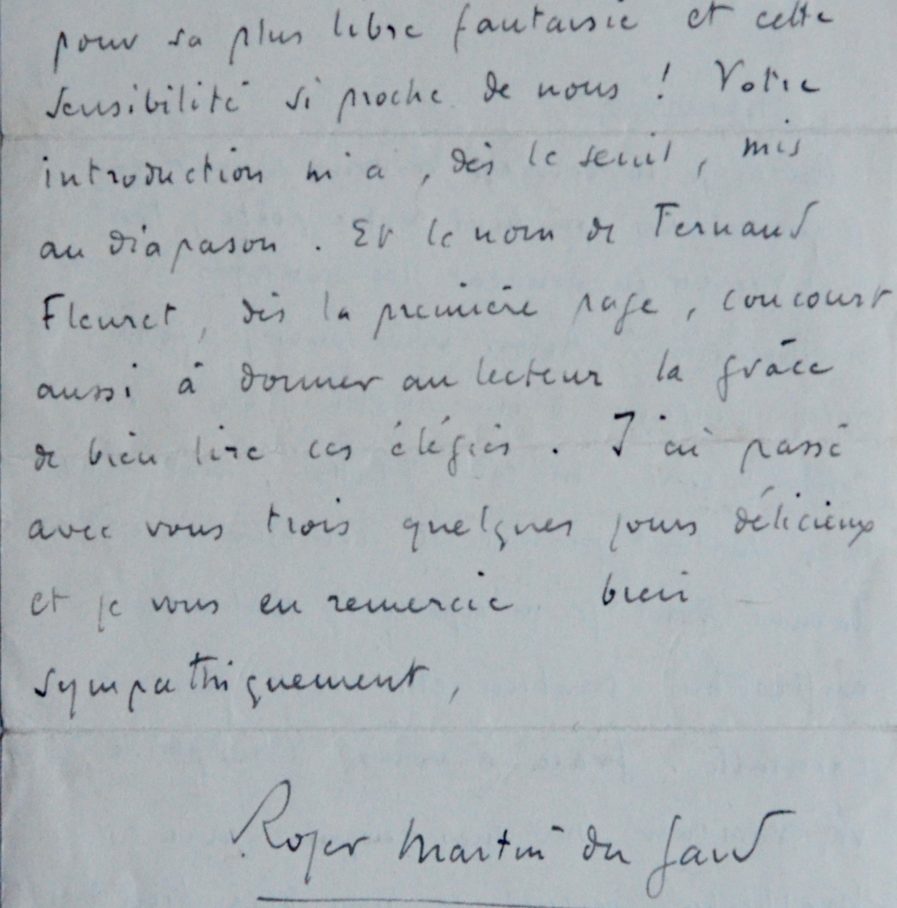 pour sa plus libre fantaisie et cette
sensibilité si proche de nous ! Votre
introduction m'a, dès le seuil, mis
au diapason. Et le nom de Fernand
Fleuret, dès la première page, concourt
aussi à donner au lecteur la grâce
de bien lire ces élégies. J'ai passé
avec vous trois quelques jours délicieux
et je vous en remercie bien
sympathiquement,
Roger Martin du Gard